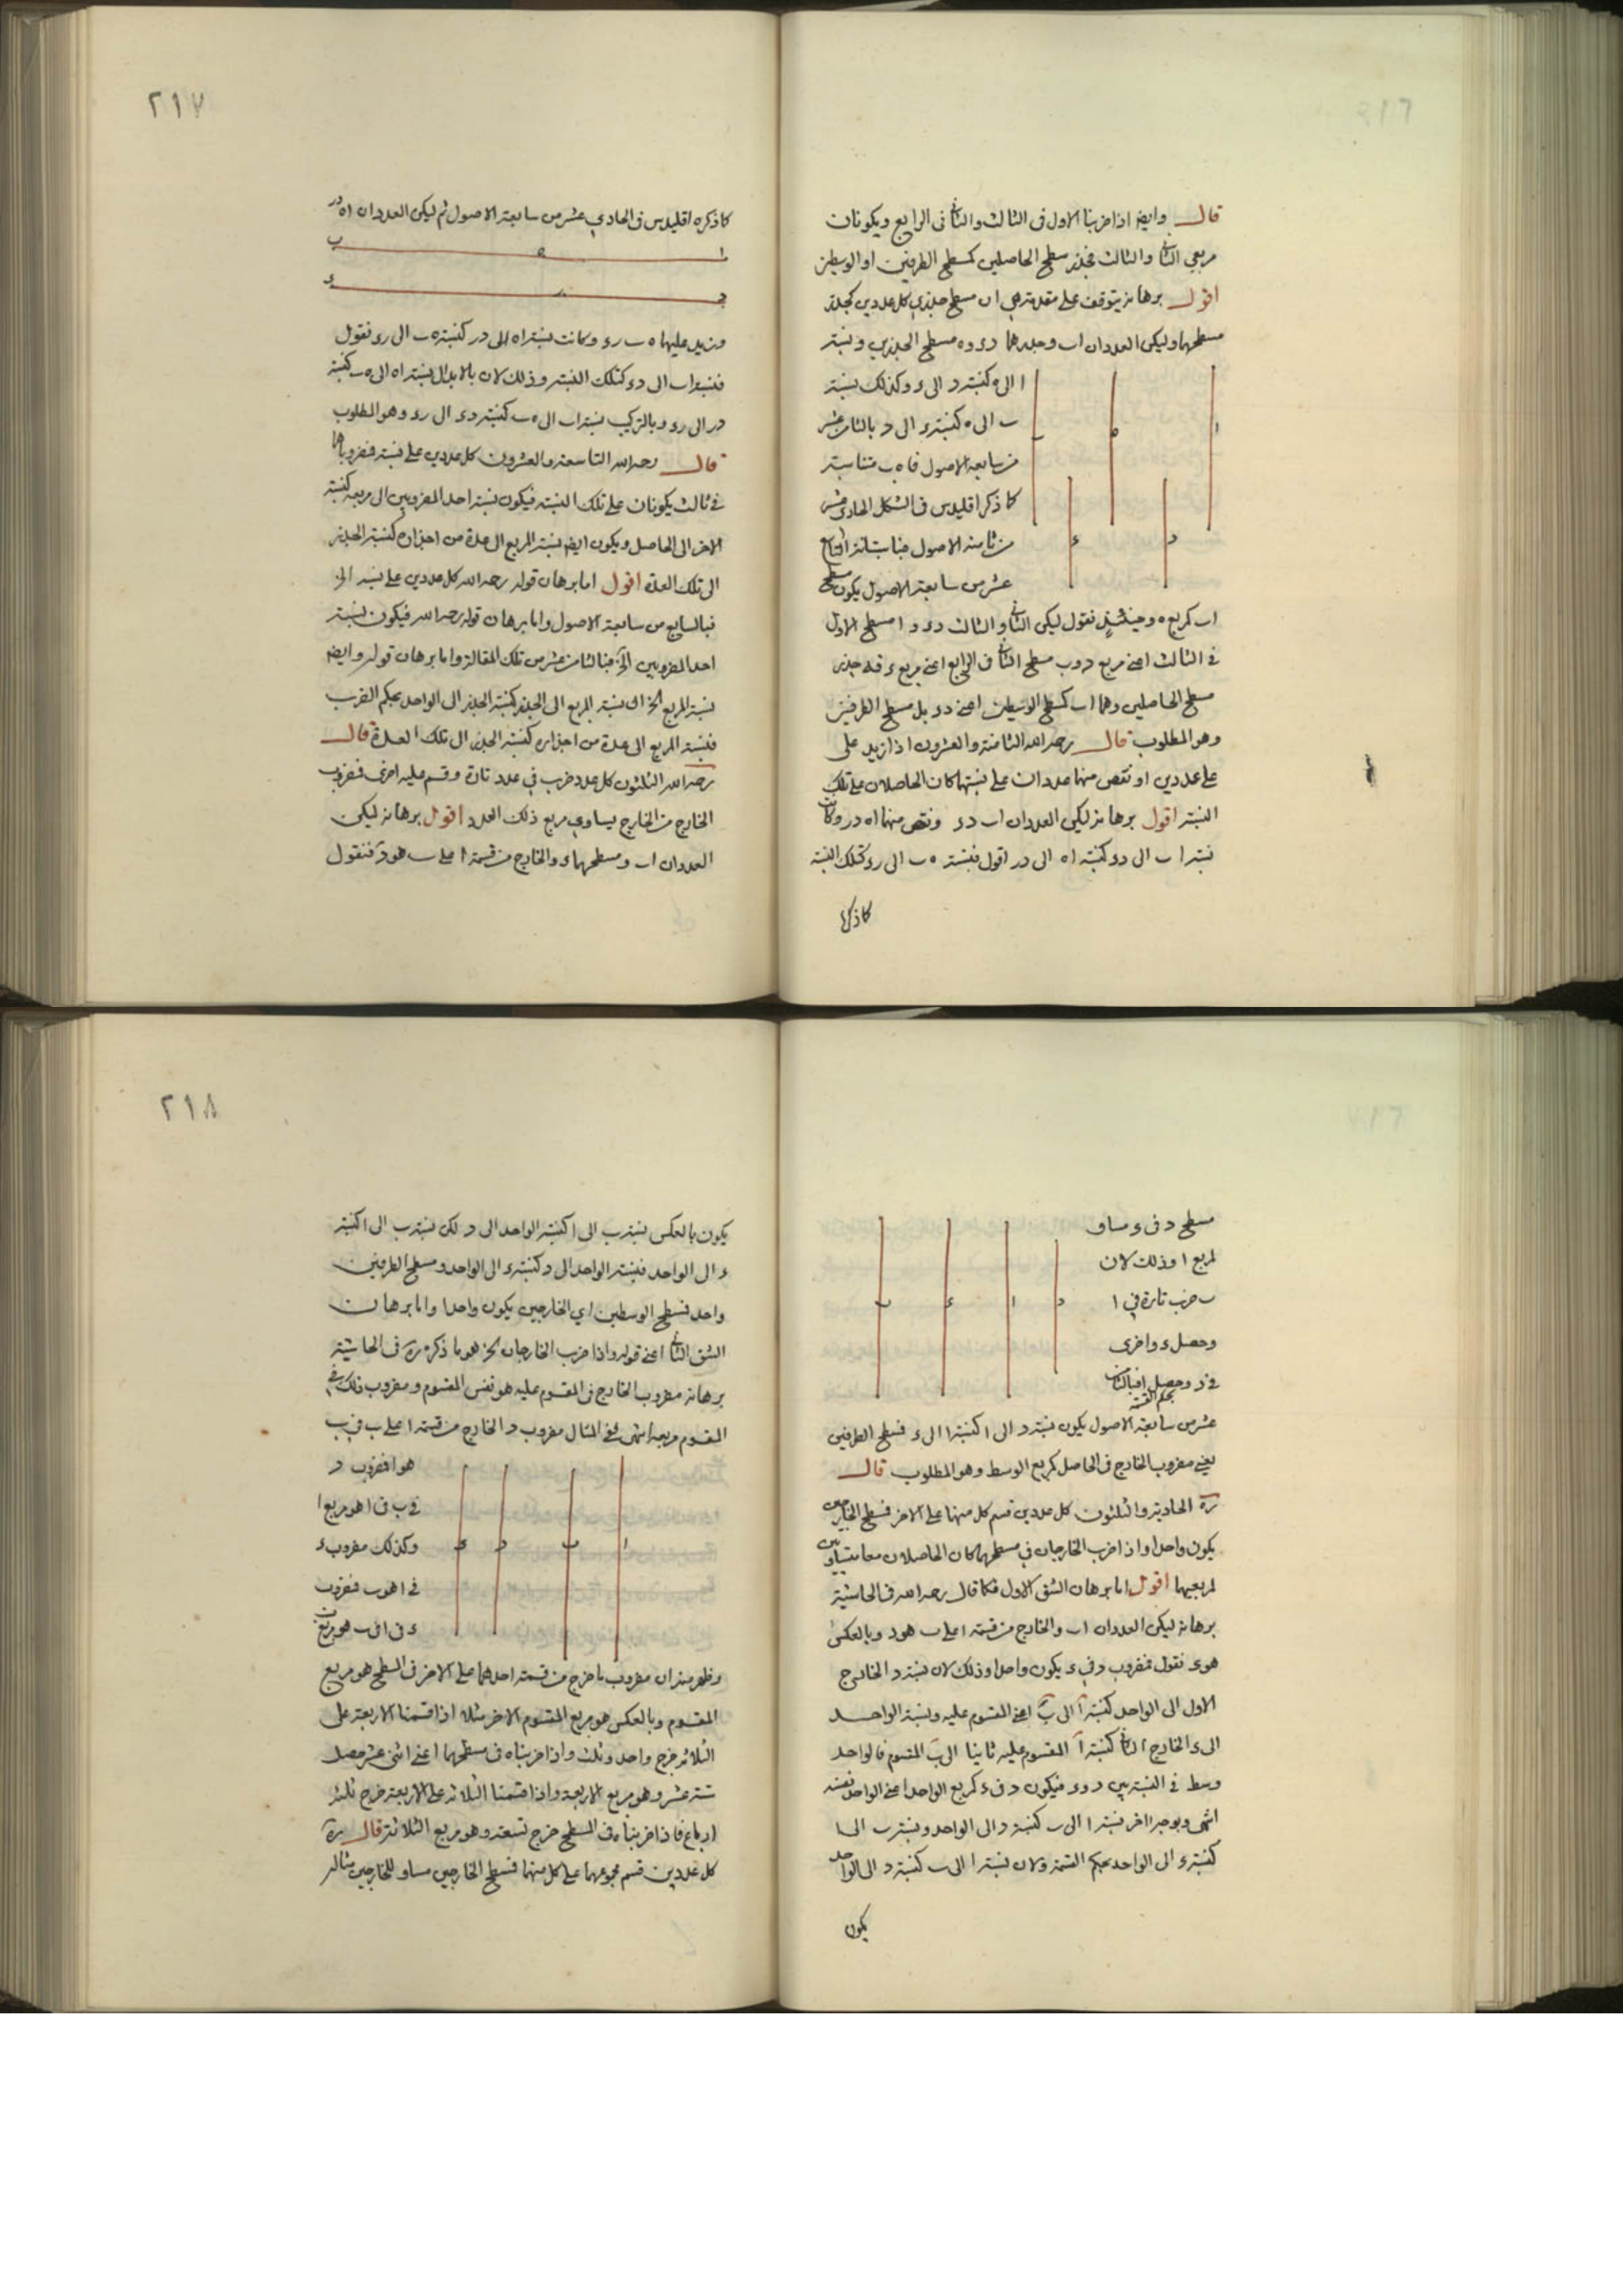 قال وايضا اذا ضربنا الاول فى الثالث والثانى فى الرابع ويكونان
مربعى الثانى والثالث فجذر مسطح الحاصلين كمسطح الطرفين او الوسطين
اقول برهانه يتوقف على مقدمة هى ان مسطح جذرى كل عددين كجذر
مسطحهما وليكن العددان ا ب وجذرهما د ء و ه مسطح الجذرين ونسبة
ا الى ه كنسبة د الى ء وكذلك نسبة
ب الى ه كنسبة ء الى د بالثامن عشر
من سابعة الاصول فا ه ب متناسبة
كما ذكر اقليدس فى الشكل الحادى عشر
من ثامنة الاصول
عشر من سابعة الاصول يكون مسطح
ا ب كمربع ه وحينئذ نقول ليكن الثانى والثالث د ء و ا مسطح الاول
فى الثالث اعنى مربع د و ب مسطح الثانى فى الرابع اعنى مربع ء فه جذر
مسطح الحاصلين وهما ا ب كمسطح الوسطين اعنى د ء بل مسطح الطرفين
وهو المطلوب قال رحمه الله الثامنة والعشرون اذا زيد على
على عددين او نقص منهما عددان على نسبتهما كان الحاصلان على تلك
النسبة اقول برهانه ليكن العددان ا ب د ء ونقص منهما ا ه د ر وكانت
نسبة ا ب الى د ء كنسبة ا ه الى د ر اقول فنسبة ه ب الى ر ء كتلك النسبة
كما ذكره
٢١٧
كما ذكره اقليدس فى الحادى عشر من سابعة الاصول ثم ليكن العددان ا ه د ر
ا ه ب
د ر ء
وزيد عليهما ه ب ر ء وكانت نسبة ا ه الى د ر كنسبة ه ب الى ر ء فنقول
فنسبة ا ب الى د ء كتلك النسبة وذلك لان بالابدال نسبة ا ه الى ه ب كنسبة
د ر الى ر ء وبالتركيب نسبة ا ب الى ه ب كنسبة د ء الى ر ء وهو المطلوب
قال رحمه الله التاسعة والعشرون كل عددين على نسبة فمضروباهما
فى ثالث يكونان على تلك النسبة فيكون نسبة احد المضروبين الى مربعه كنسبة
الاخر الى الحاصل ويكون ايضا نسبة المربع الى عدة من اجذاره كنسبة الجذر
الى تلك العدة اقول اما برهان قوله رحمه الله كل عددين على نسبة الخ
فبالسابع من سابعة الاصول واما برهان قوله رحمه الله فيكون نسبة
احد المضروبين الخ فبالثامن عشر من تلك المقالة واما برهان قوله وايضا
نسبة المربع الخ ان نسبة المربع الى الجذر كنسبة الجذر الى الواحد بحكم الضرب
فنسبة المربع الى عدة من اجذاره كنسبة الجذر الى تلك العدة قال
رحمه الله الثلثون كل عدد ضرب فى عدد تارة وقسم عليه اخرى فمضروب
الخارج من الخارج يساوى مربع ذلك العدد اقول برهانه ليكن
العددان ا ب ومسطحهما ء والخارج من قسمة ا على ب هو د فنقول
مسطح د فى ء مساو
لمربع ا وذلك لان
ب ضرب تارة فى ا
وحصل ء واخرى
فى د وحصل ا فبالثامن
بحكم القسمة
عشر من سابعة الاصول يكون نسبة د الى ا كنسبة ا الى ء فمسطح الطرفين
يعنى مضروب الخارج فى الحاصل كمربع الوسط وهو المطلوب قال
ره الحادية والثلثون كل عددين قسم كل منهما على الاخر فمسطح الخارجين
يكون واحدا واذا ضرب الخارجان فى مسطحهما كان الحاصلان معا متساويين
لمربعيهما اقول اما برهان الشق الاول فكما قال رحمه الله فى الحاشية
برهانه ليكن العددان ا ب والخارج من قسمة ا على ب هو د وبالعكس
هو ء نقول فمضروب د فى ء يكون واحدا وذلك لان نسبة د الخارج
الاول الى الواحد كنسبة ا الى ب اعنى المقسوم عليه ونسبة الواحد
الى ء الخارج الثانى كنسبة ا المقسوم عليه ثانيا الى ب المقسوم فالواحد
وسط فى النسبة بين د و ء فيكون د فى ء كمربع الواحد اعنى الواحد نفسه
انتهى وبوجه اخر نسبة ا الى ب كنسبة د الى الواحد ونسبة ب الى ا
كنسبة ء الى الواحد بحكم القسمة ولان نسبة ا الى ب كنسبة د الى الواحد
يكون
٢١٨
يكون بالعكس نسبة ب الى ا كنسبة الواحد الى د لكن نسبة ب الى ا كنسبة
ء الى الواحد فنسبة الواحد الى د كنسبة ء الى الواحد ومسطح الطرفين
واحد فمسطح الوسطين اى الخارجين يكون واحدا واما برهان
الشق الثانى اعنى قوله واذا ضرب الخارجان الخ هو ما ذكره ره فى الحاشية
برهانه مضروب الخارج فى المقسوم عليه هو نفس المقسوم ومضروب ذلك فى
المقسوم مربعه انتهى ففى المثال مضروب د الخارج من قسمة ا على ب فى ب
هو ا فمضروب د
فى ب فى ا هو مربع ا
وكذلك مضروب ء
فى ا هو ب فمضروب
ء فى ا فى ب هو مربع ب
وظهر منه ان مضروب ما خرج من قسمة احدهما على الاخر فى المسطح هو مربع
المقسوم وبالعكس هو مربع المقسوم الاخر مثلا اذا قسمنا الاربعة على
الثلاثة خرج واحد وثلث واذا ضربناه فى مسطحهما اعنى اثنى عشر حصل
ستة عشر وهو مربع الاربعة واذا قسمنا الثلاثة على الاربعة خرج ثلثة
ارباع فاذا ضربناه فى المسطح خرج تسعة وهو مربع الثلاثة قال ره
كل عددين قسم مجموعهما على كل منهما فمسطح الخارجين مساو للخارجين مثاله